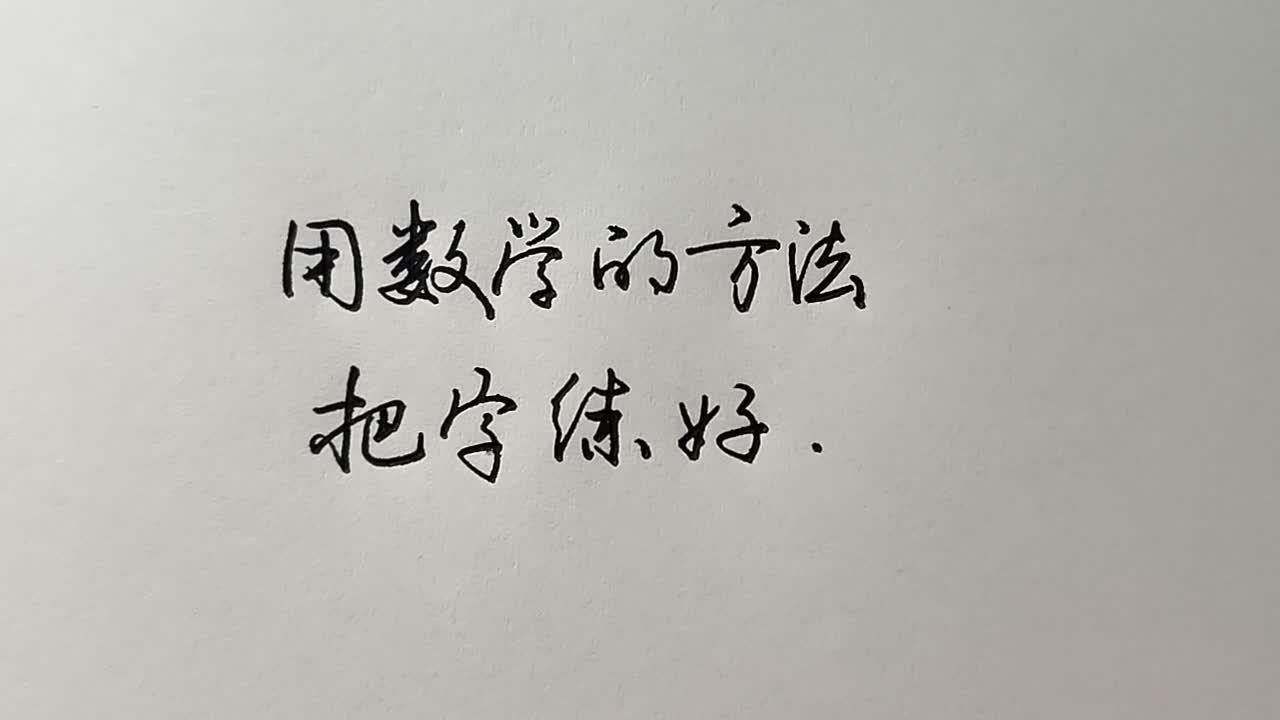 用数学的方法
把字练好.